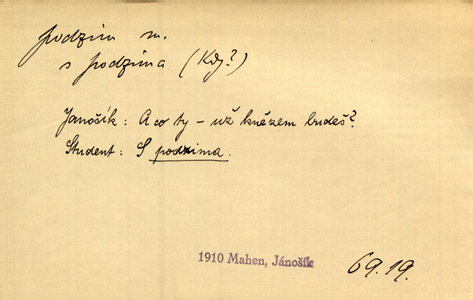 podzim m.
s podzima (Kdy?)
Janošík: A co ty – už knězem budeš?
Student: S podzima.
1910 Mahen, Jánošík
69.19.